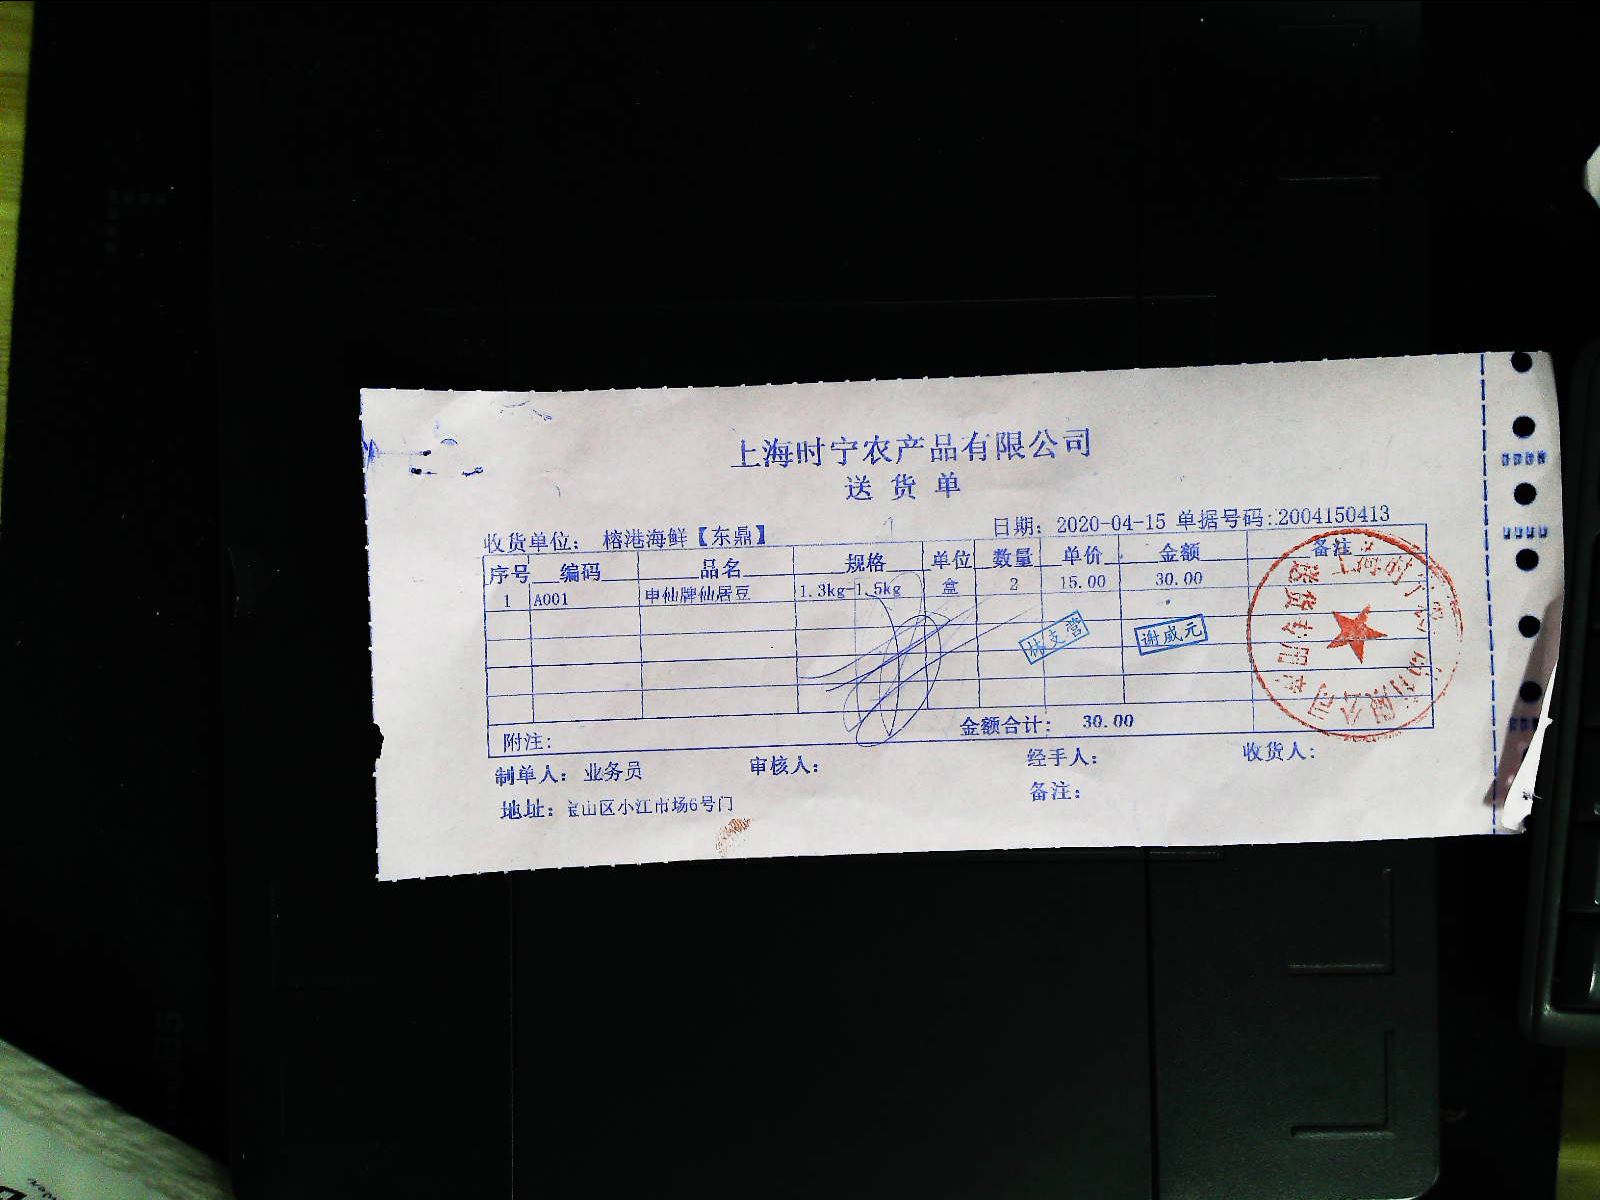 上海时宁农产品有限公司
送货单
收货单位： 榕港海鲜【东鼎】 日期： 2020-04-15 单据号码：2004150413
序号 编码 品名 规格 单位 数量 单价 金额 备注
1 A001 申仙牌仙居豆 1.3kg-1.5kg 盒 2 15.00 30.00
林支营 谢咸元
送货专用章
有限公司
附注： 金额合计： 30.00
制单人： 业务员 审核人： 经手人： 收货人：
地址： 宝山区小江市场6号门 备注：